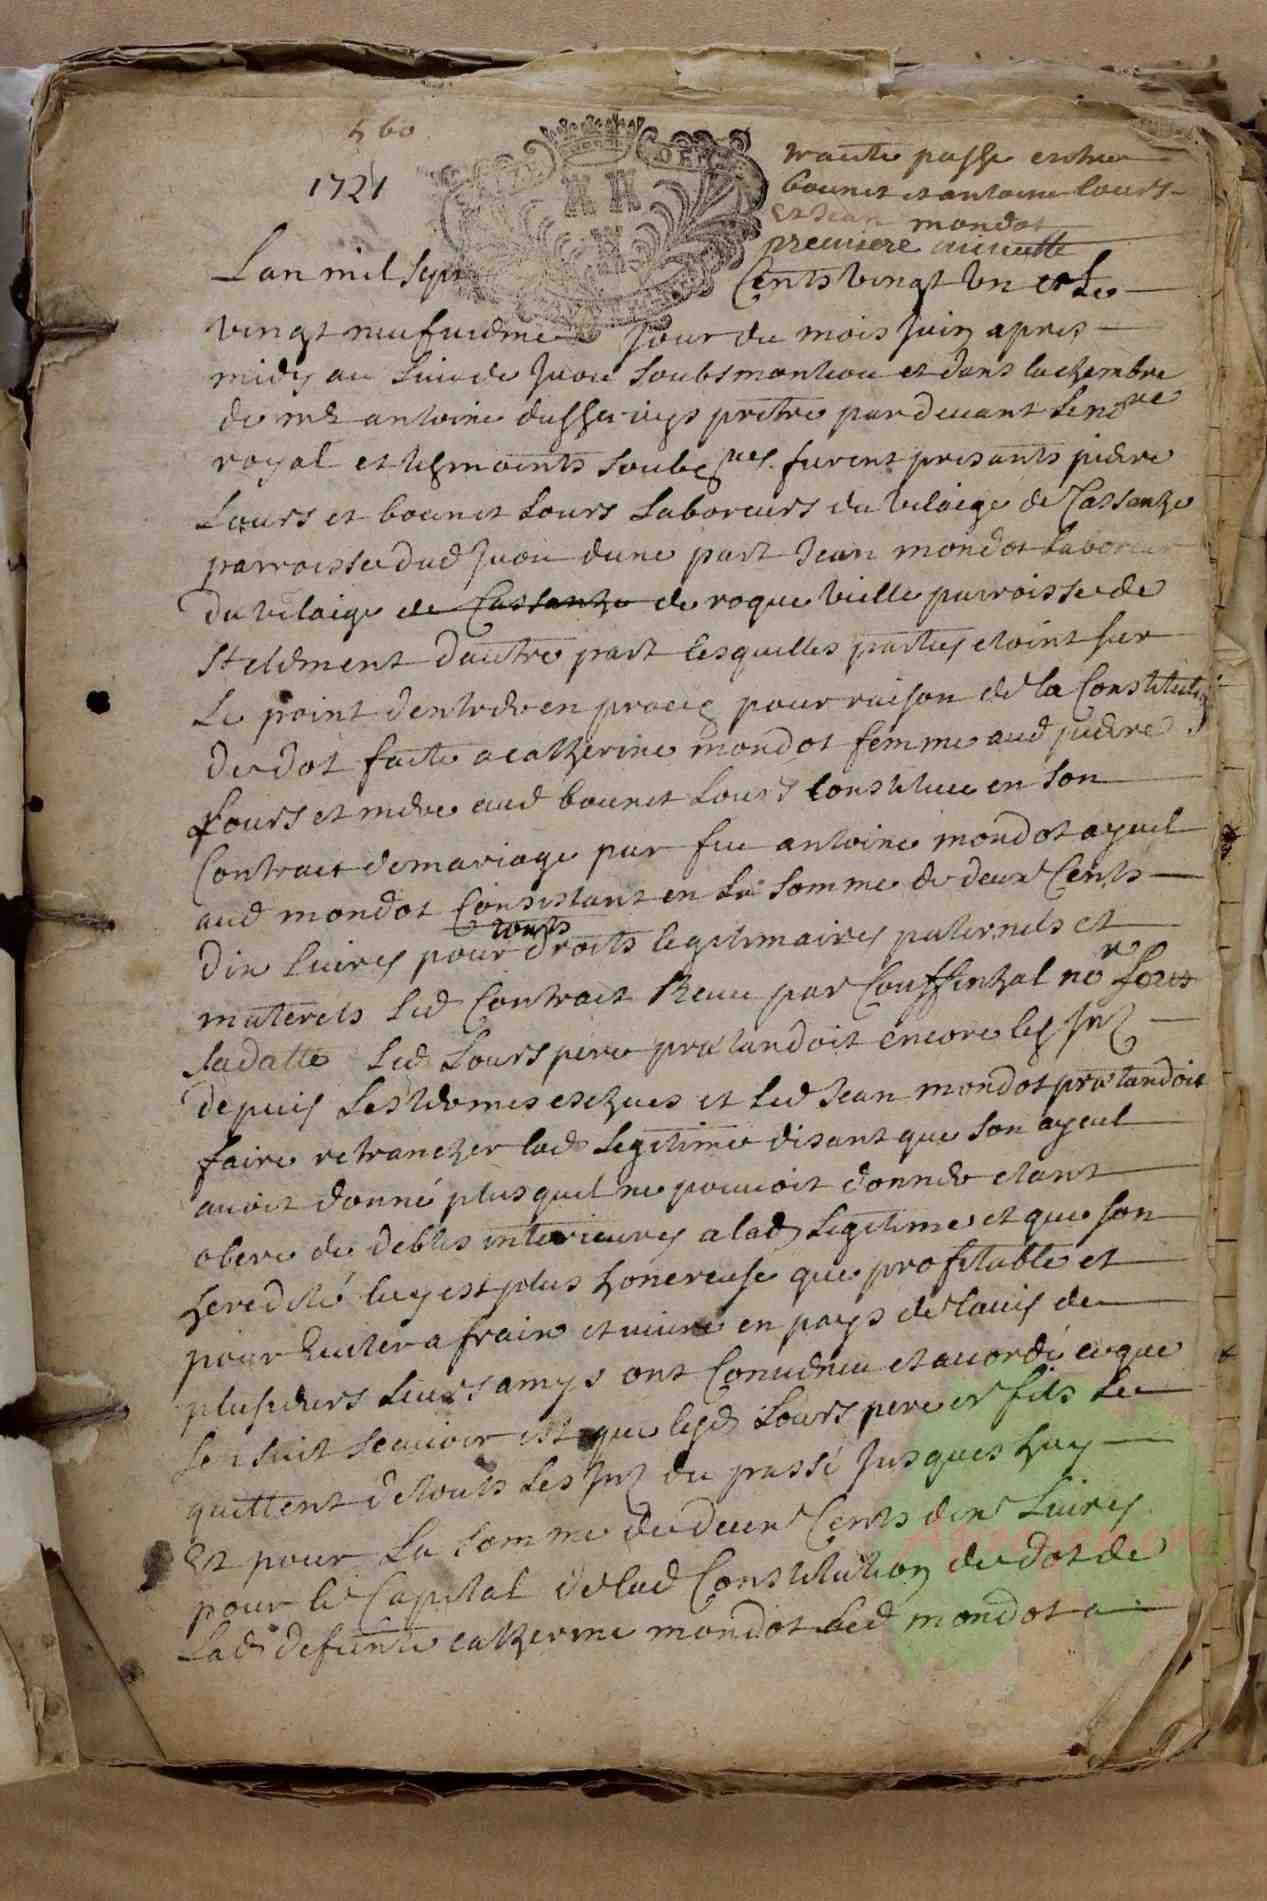 560
1721
traite passe entre
bounet et antoine Lours
et Jean mondot
premiere minutte
Lan mil sept Cents vingt un et Le
vingt neufviemе Jour du mois Juin apres
midy au lieu de Jou soubs monteou et dans la chembre
de mr antoine prêtre par devant Le nore
royal et tesmoints soubsnes furent presants pierre
Lours et bounet Lours Laboreurs du vilaige de Cassanhe
parroisse dud Jou dune part Jean mondot Laboreur
du vilaige de Cassanhe de roque vielle parroisse de
St clement dautre part lesquelles parties etoint sur
Le point dentrer en proces pour raison de la Constitution
de dot faite a catherine mondot femme aud pierre
Lours et mere aud bounet Lours constituee en son
Contract de mariage par feu antoine mondot ayeul
aud mondot Consistant en La somme de deux Cents
dix Livres pour touts droits legitimaires paternels et
maternels Led Contract Receu par Couffinhal nore sous
sa datte Led Lours pere pretandoit encore les intz
depuis Les termes eschus et Led Jean mondot pretandoit
faire retrancher lad Legitime disant que son ayeul
avoit donné plus quil ne pouvoit donner etant
obere de debtes interieures a lad Legitime et que son
heredité luy est plus honereuse que profitable et
pour Eviter a fraix et vivre en pays de lavis de
plusieurs Leurs amys ont Convenu et acordé ce que
sensuit scavoir est que lesd Lours pere et fils Le
quittent de touts Les intz du passé Jusques huy
Et pour La somme de deux Cents dix Livres
pour le Capital de lad Constitution de dot de
Lad defunte catherine mondot Led mondot a